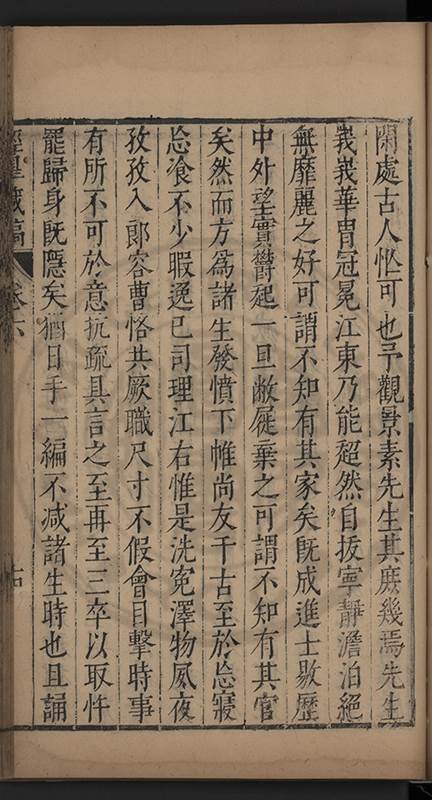 閑處古人恠可也予觀景素先生其庶幾焉先生
峩峩華胄冠冕江東乃能超然自拔寧靜澹泊絕
無靡麗之好可謂不知有其家矣既成進士敭歷
中外望實鬱起一旦敝屣棄之可謂不知有其官
矣然而方爲諸生發憤下帷尚友千古至於忘寢
忘飡不少暇逸已司理江右惟是洗冤澤物夙夜
孜孜入郎容曹恪共厥職尺寸不假會目擊時事
有所不可於意抗疏具言之至再至三卒以取忤
罷歸身既隱矣猶日手一編不减諸生時也且誦
藏稿
卷六